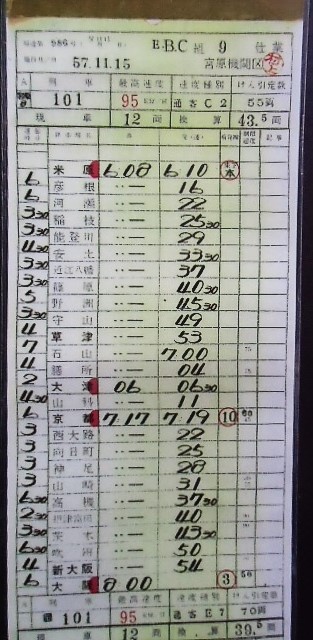 E.B.C 組 9 仕業
57.11.15 宮原機関区
A 列車 最高速度 速度種別 けん引定数
101 95 通客C2 55両
現車 12両 換算 43.5両
米原 6.08 6 10
6 彦根 ‥― 16
6 河瀬 ‥― 22
3 30 稲枝 ‥― 25 30
3 30 能登川 ‥― 29
4 30 安土 ‥― 33 30
3 30 近江八幡 ‥― 37
3 30 篠原 ‥― 40 30
5 野洲 ‥― 45 30
3 30 守山 ‥― 49
4 草津 ‥― 53
7 石山 ‥― 7.00
4 膳所 ‥― 04
2 大津 06 06 30
4 山科 ‥― 11
6 京都 7.17 7.19 10
3 西大路 ‥― 22
3 向日町 ‥― 25
3 神足 ‥― 28
3 山崎 ‥― 31
6 30 高槻 ‥― 37 30
2 30 摂津富田 ‥― 40
3 30 茨木 ‥― 43 30
6 30 吹田 ‥― 50
4 新大阪 ‥― 54
6 大阪 8 00 3
列車 最高速度 速度種別 けん引定数
101 95 通客E7 70両
現車 12両 換算 39.5両